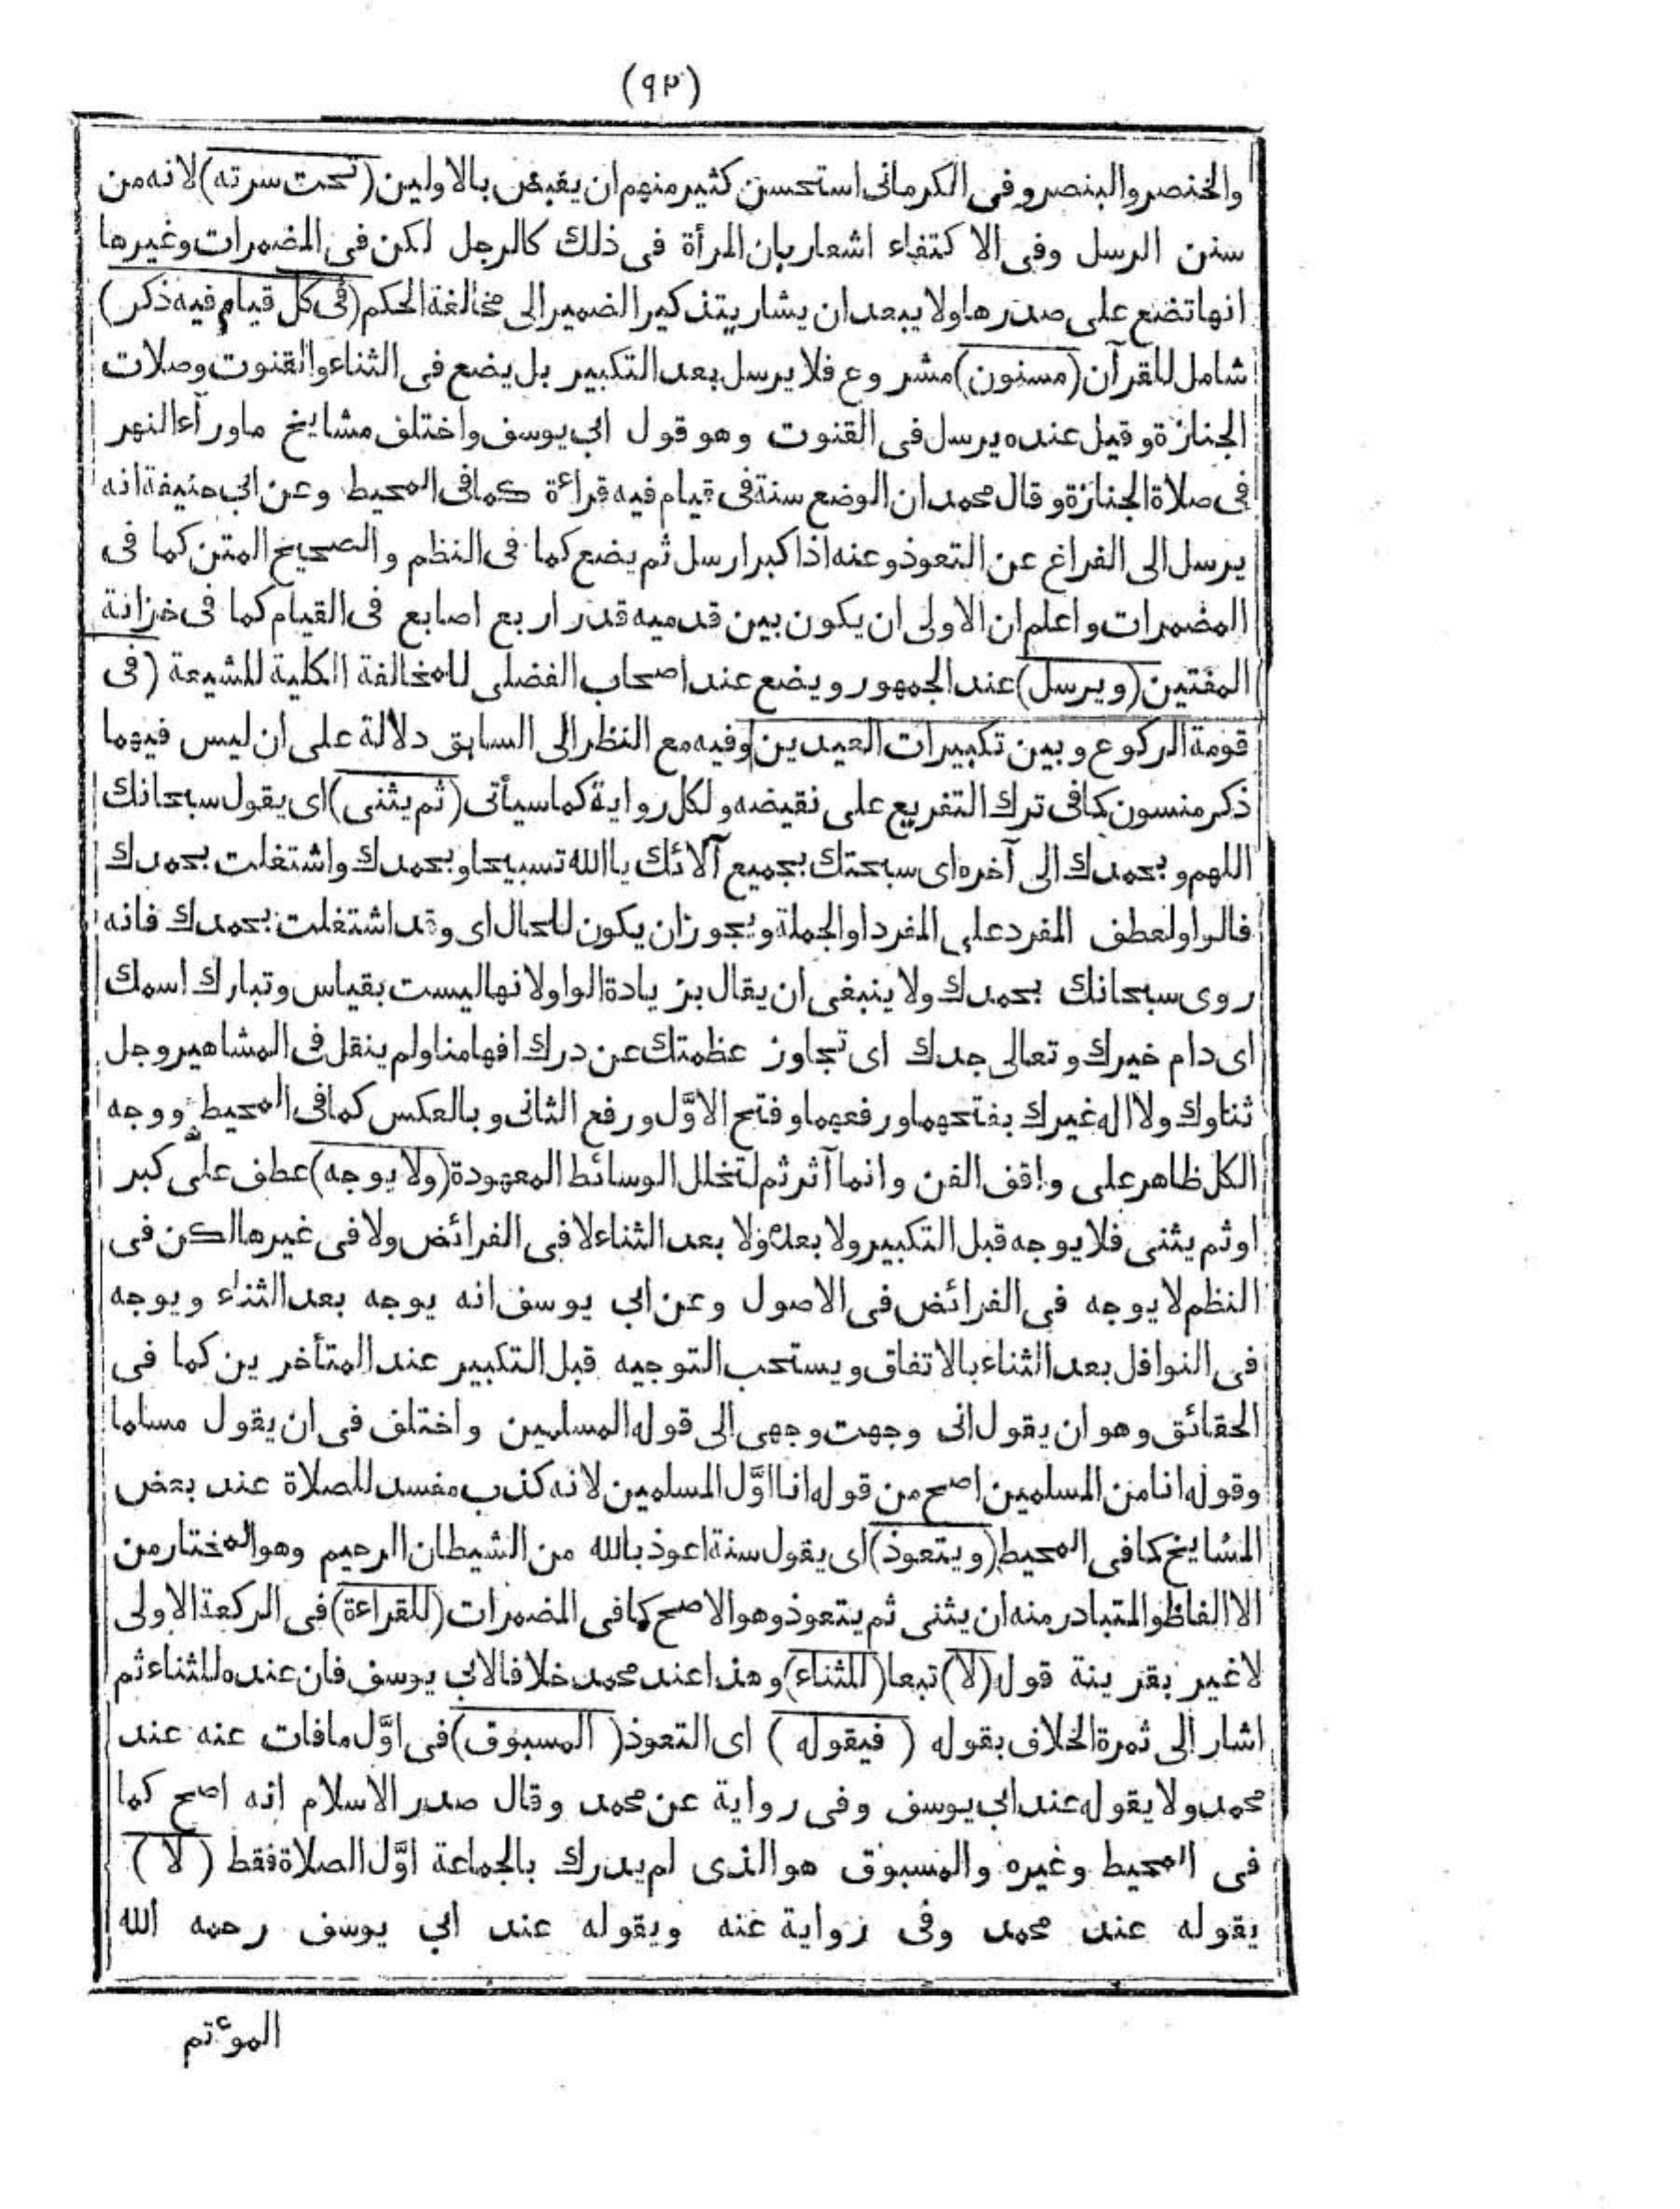 (٩٣)
والخنصر والبنصر وفى الكرمانى استحسن كثير منهم ان يقبض بالاولين (تحت سرته) لانه من
سنن الرسل وفى الاكتفاء اشعار بان المرأة فى ذلك كالرجل لكن فى المضمرات وغيرها
انها تضع على صدرها ولا يبعد ان يشار بتذكير الضمير الى مخالفة الحكم (فى كل قيام فيه ذكر)
شامل للقرآن (مسنون) مشروع فلا يرسل بعد التكبير بل يضع فى الثناء والقنوت وصلات
الجنازة وقيل عنده يرسل فى القنوت وهو قول ابى يوسف واختلف مشايخ ماورآء النهر
فى صلاة الجنازة وقال محمد ان الوضع سنة فى قيام فيه قراءة كما فى المحيط وعن ابى حنيفة انه
يرسل الى الفراغ عن التعوذ وعنه اذا كبر ارسل ثم يضع كما فى النظم والصحيح المتن كما فى
المضمرات واعلم ان الاولى ان يكون بين قدميه قدر اربع اصابع فى القيام كما فى خزانة
المفتين (ويرسل) عند الجمهور ويضع عند اصحاب الفضلى للمخالفة الكلية للشيعة (فى
قومة الركوع وبين تكبيرات العيدين) وفيه مع النظر الى السابق دلالة على ان ليس فيهما
ذكر منسون كما فى ترك التفريع على نقيضه ولكل رواية كما سيأتى (ثم يثنى) اى يقول سبحانك
اللهم وبحمدك الى آخره اى سبحتك بجميع آلائك يا الله تسبيحا وبحمدك واشتغلت بحمدك
فالواو لعطف المفرد على المفرد او الجملة ويجوز ان يكون للحال اى وقد اشتغلت بحمدك فانه
روى سبحانك بحمدك ولا ينبغى ان يقال بزيادة الواو لانها ليست بقياس وتبارك اسمك
اى دام خيرك وتعالى جدك اى تجاوز عظمتك عن درك افهامنا ولم ينقل فى المشاهير وجل
ثناوك ولا اله غيرك بفتحهما ورفعهما وفتح الاوّل ورفع الثانى وبالعكس كما فى المحيط ووجه
الكل ظاهر على واقف الفن وانما آثر ثم لتخلل الوسائط المعهودة (ولا يوجه) عطف على كبر
او ثم يثنى فلا يوجه قبل التكبير ولا بعده ولا بعد الثناء لا فى الفرائض ولا فى غيرها لكن فى
النظم لا يوجه فى الفرائض فى الاصول وعن ابى يوسف انه يوجه بعد الثناء ويوجه
فى النوافل بعد الثناء بالاتفاق ويستحب التوجيه قبل التكبير عند المتأخرين كما فى
الحقائق وهو ان يقول انى وجهت وجهى الى قوله المسلمين واختلف فى ان يقول مسلما
وقوله انا من المسلمين اصح من قوله انا اوّل المسلمين لانه كذب مفسد للصلاة عند بعض
المشايخ كما فى المحيط (ويتعوذ) اى يقول سنة اعوذ بالله من الشيطان الرجيم وهو المختار من
الا الفاظ والمتبادر منه ان يثنى ثم يتعوذ وهو الاصح كما فى المضمرات (للقراءة) فى الركعة الاولى
لا غير بقرينة قول (لا) تبعا (للثناء) وهذا عند محمد خلافا لابى يوسف فان عنده للثناء ثم
اشار الى ثمرة الخلاف بقوله (فيقوله) اى التعوذ (المسبوق) فى اوّل مافات عنه عند
محمد ولا يقوله عند ابى يوسف وفى رواية عن محمد وقال صدر الاسلام انه اصح كما
فى المحيط وغيره والمسبوق هو الذى لم يدرك بالجماعة اوّل الصلاة فقط (لا)
يقوله عند محمد وفى رواية عنه ويقوله عند ابى يوسف رحمه الله
الموءتم